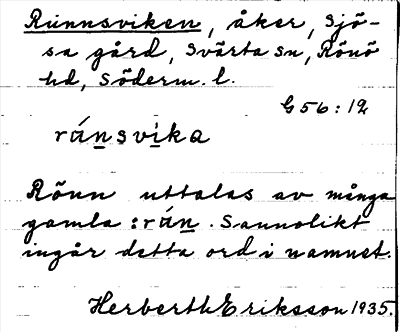 Runnsviken, åker, Sjö-
sa gård, Svärta sn, Rönö
hd, Söderm. l.
G 56:12
ránsvika
Rönn uttalas av många
gamla : rán. Sannolikt
ingår detta ord i namnet.
Herberth Eriksson 1935.